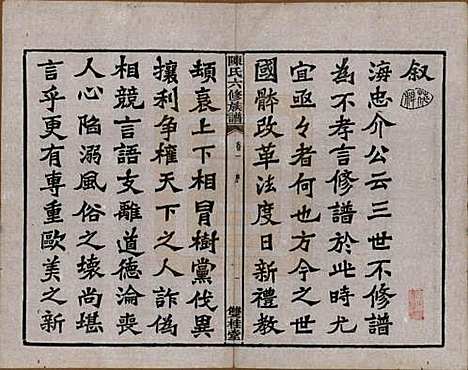 叙
海忠介公云三世不修譜
為不孝言修譜於此時尤
宜亟々者何也方今之世
國體改革法度日新禮教
陳氏六修族譜
卷一 序
雙桂堂
頹衰上下相冒樹黨伐異
攘利爭權天下之人詐偽
相競言語支離道德淪喪
人心陷溺風俗之壞尚堪
言乎更有專重歐美之新